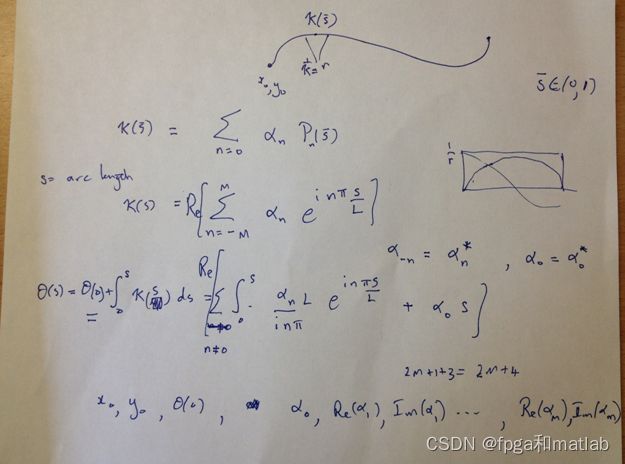 K(s̄)
1/K = r
x₀, y₀
s̄ ∈ (0,1)
K(s̄) = ∑_{n=0} αₙ Pₙ(s̄)
1/r
s = arc length
K(s) = Re[ ∑_{n=-M}^{M} αₙ e^{i n π s/L} ]
α₋ₙ = αₙ* , α₀ = α₀*
θ(s) = θ(0) + ∫₀ˢ K(s) ds = Re[ ∑_{n≠0} ∫₀ˢ αₙ L / i n π e^{i n π s/L} + α₀ s ]
2M+1+3 = 2M+4
x₀, y₀, θ(0), α₀, Re(α₁), Im(α₁) ..., Re(αₘ), Im(αₘ)
CSDN @fpga和matlab